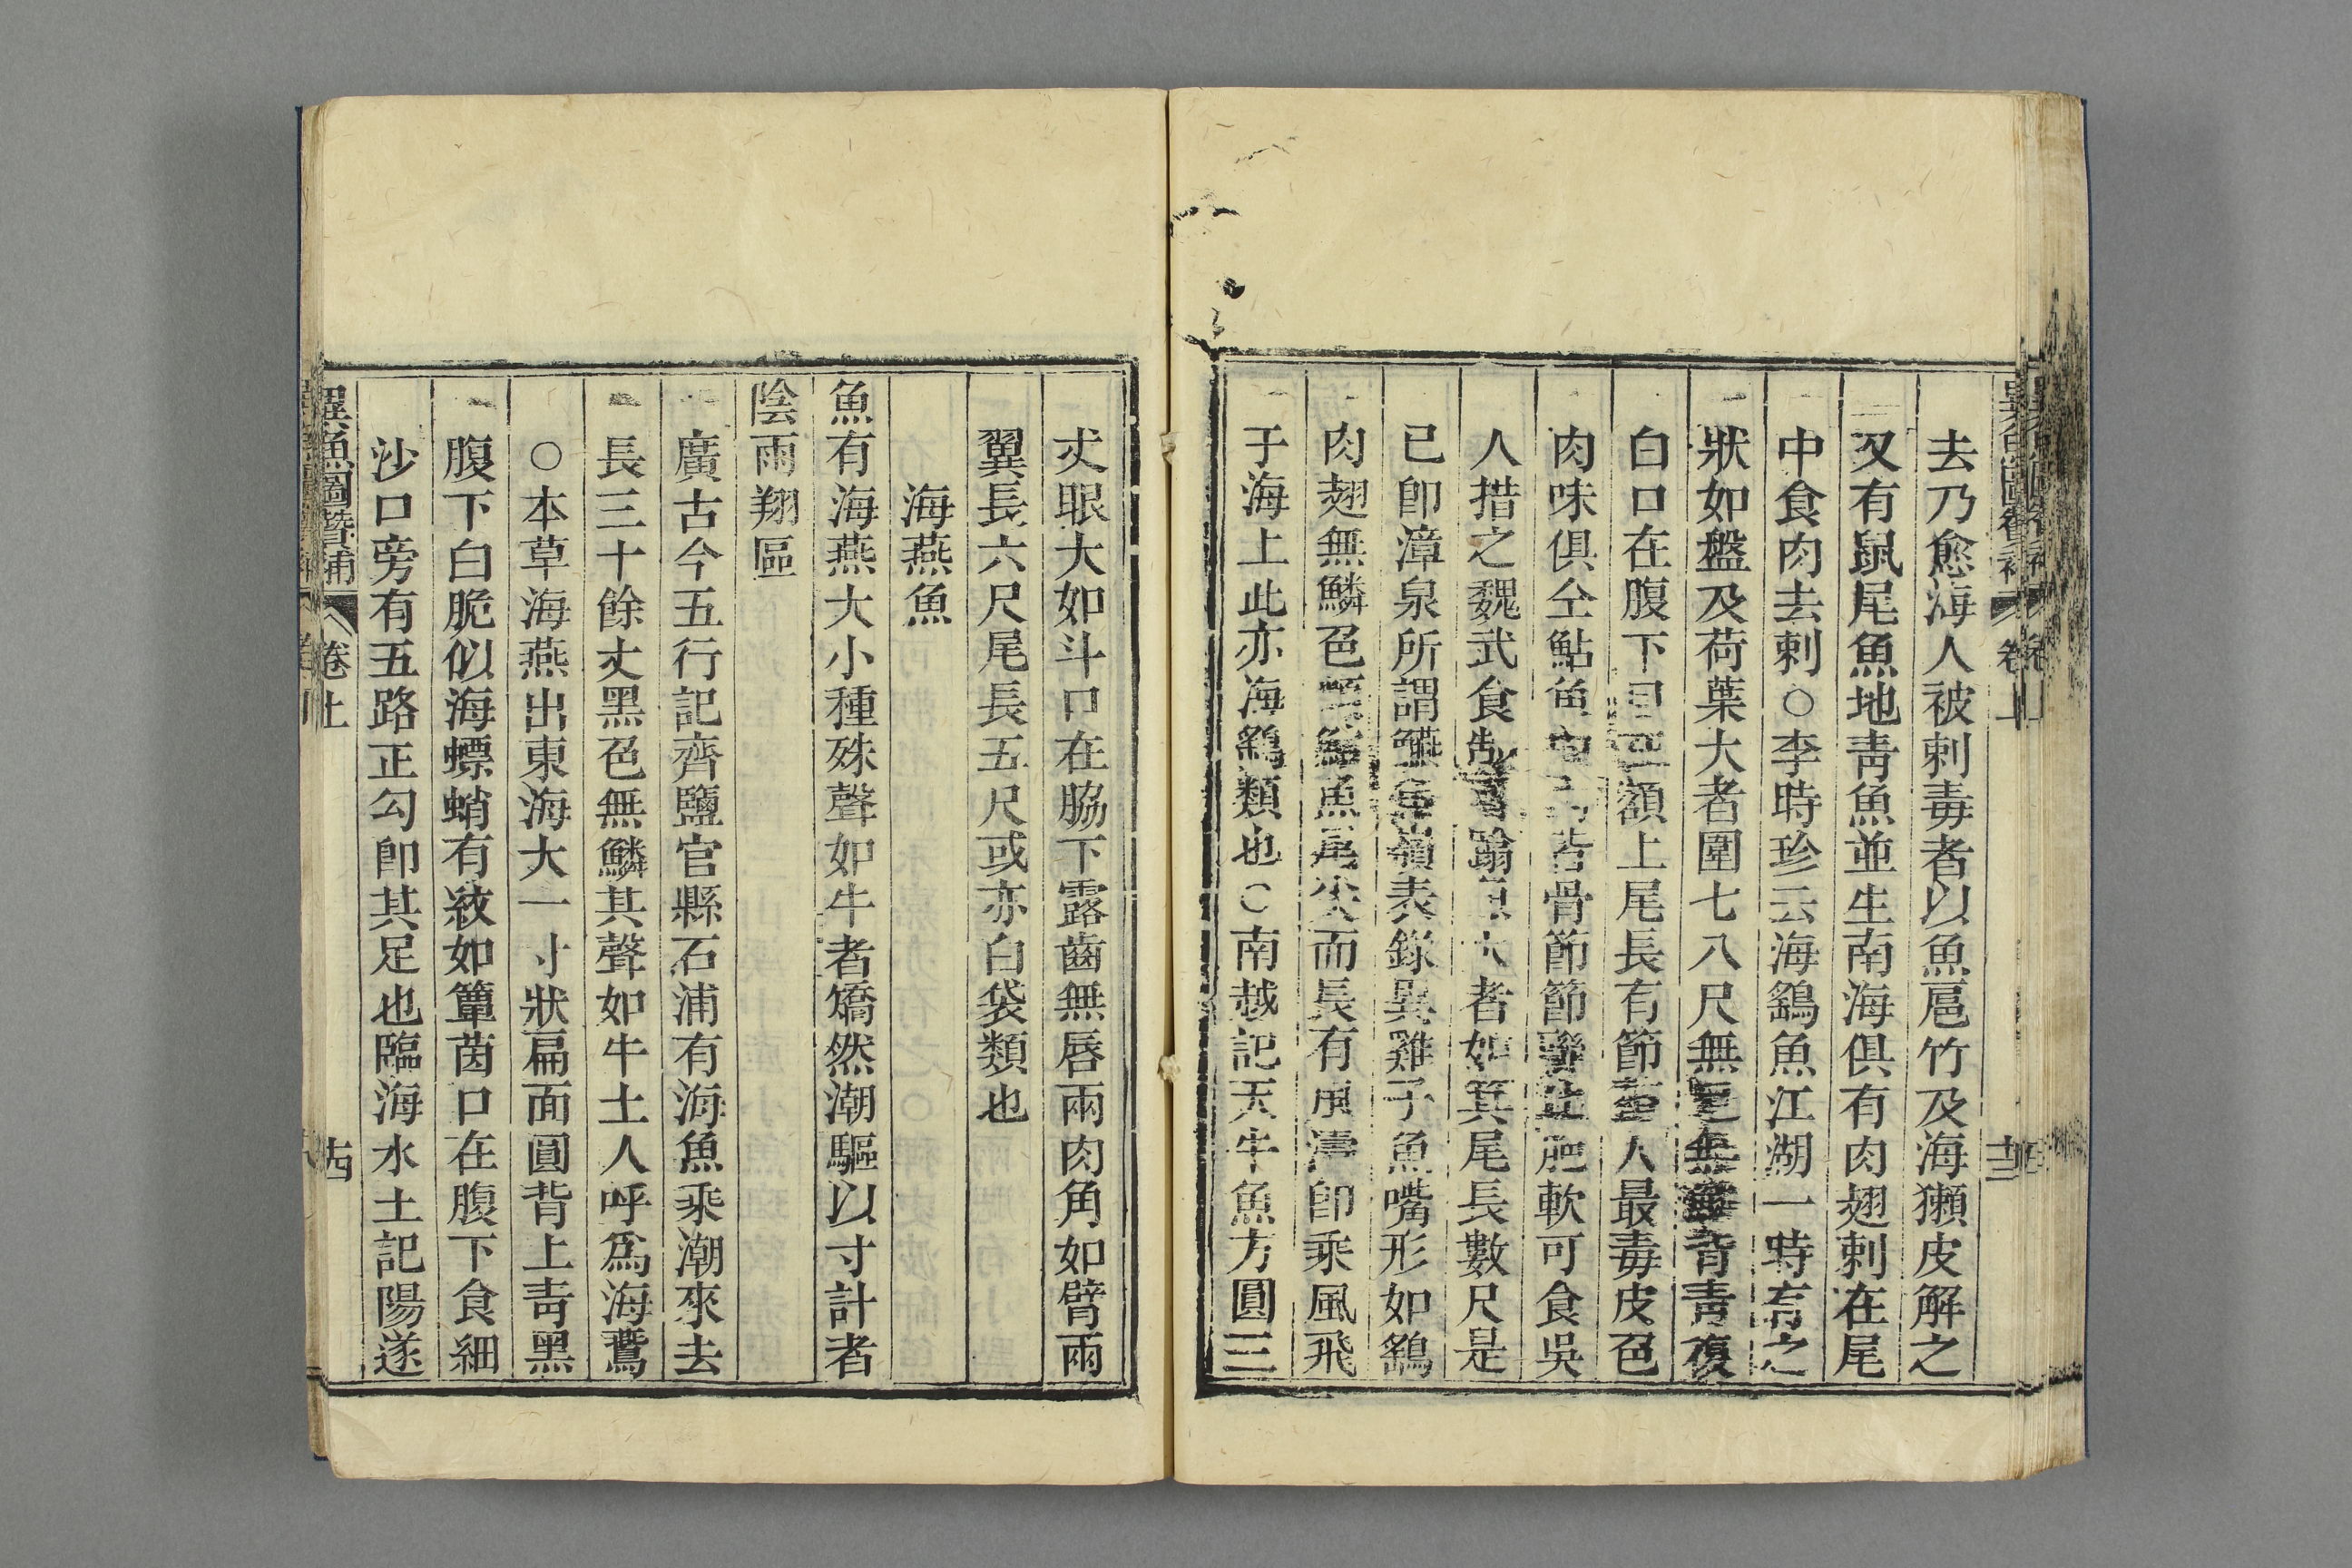 去乃愈海人被刺毒者以魚扈竹及海獺皮解之
又有鼠尾魚地青魚並生南海俱有肉翅刺在尾
中食肉去刺○李時珍云海鷂魚江湖一時有之
狀如盤及荷葉大者圍七八尺無足無鱗背青腹
白口在腹下目在額上尾長有節螫人最毒皮色
肉味俱仝鮎魚肉皆骨節節聯比脆軟可食吳
人措之魏武食制蕃踰魚大者如箕尾長數尺是
已即漳泉所謂魚嶺表錄異雞子魚嘴形如鷂
肉翅無鱗色類鮎魚尾尖而長有風濤即乘風飛
于海上此亦海鷂類也○南越記天牛魚方圓三
丈眼大如斗口在脇下露齒無唇兩肉角如臂兩
翼長六尺尾長五尺或亦白袋類也
海燕魚
魚有海燕大小種殊聲如牛者矯然潮驅以寸計者
陰雨翔區
廣古今五行記齊鹽官縣石浦有海魚乘潮來去
長三十餘丈黑色無鱗其聲如牛土人呼爲海鷰
○本草海燕出東海大一寸狀扁面圓背上青黑
腹下白脆似海螵蛸有紋如簟茵口在腹下食細
沙口旁有五路正勾即其足也臨海水土記陽遂
異魚圖贊補
卷上
十四